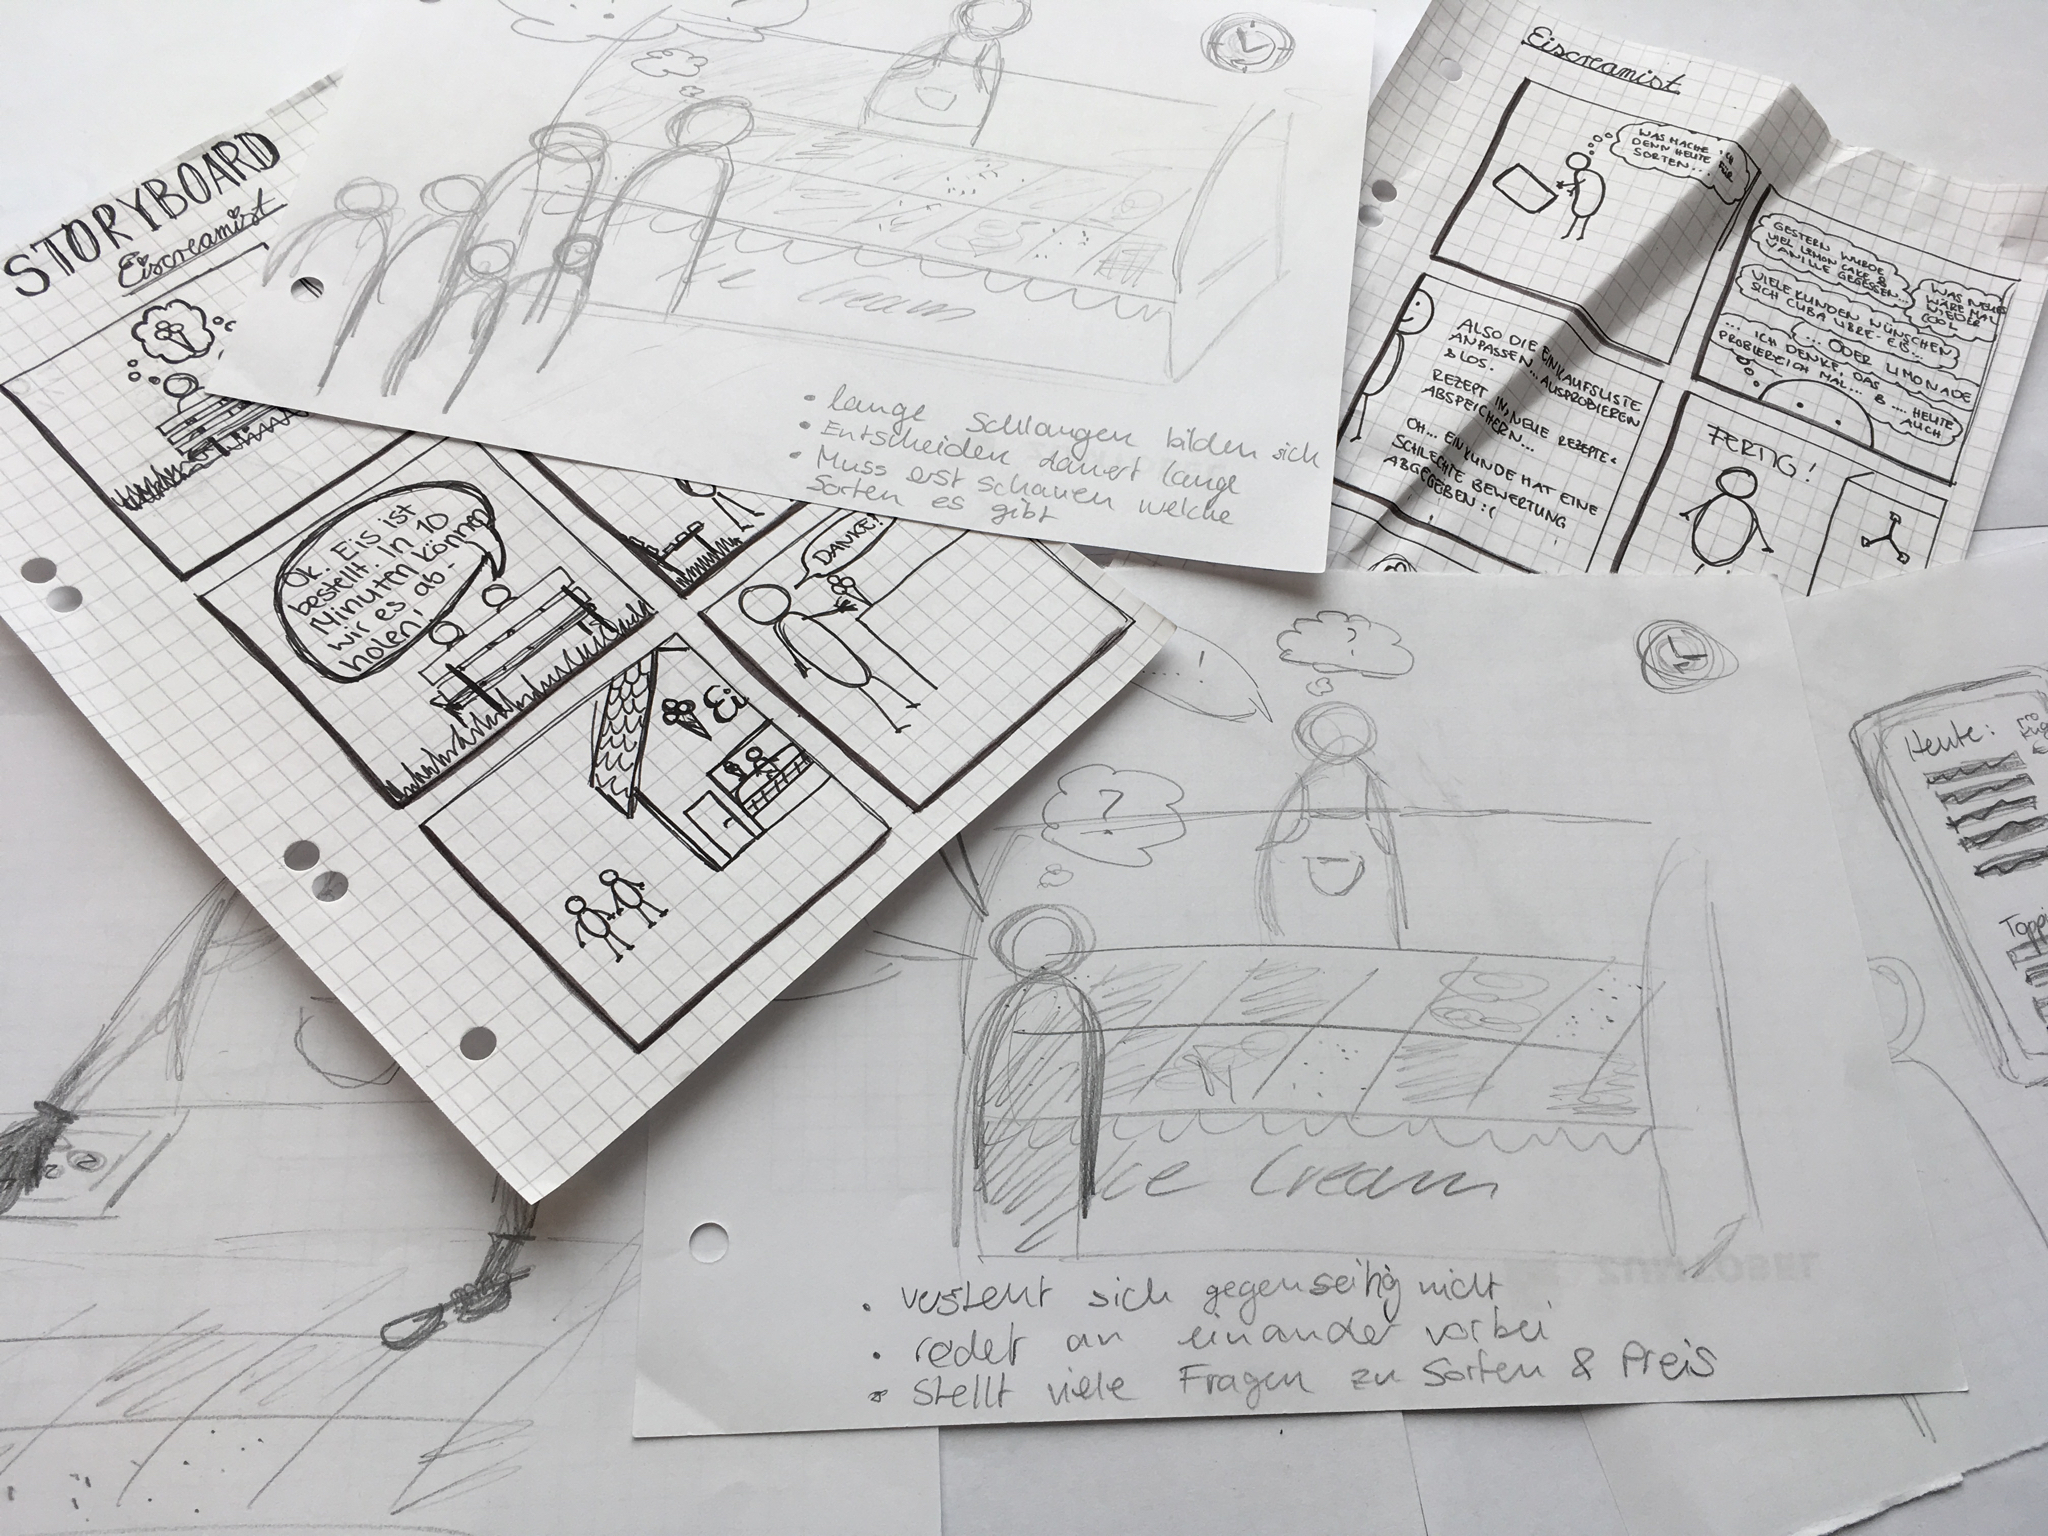 STORYBOARD
Eiscreamist
Ok. Eis ist
bestellt. In 10
Minuten können
wir es ab-
holen!
DANKE!
Ei
Ice Cream
• lange Schlangen bilden sich
• Entscheiden dauert lange
• Muss erst schauen welche
Sorten es gibt
Eiscreamist
WAS MACHE ICH
DENN HEUTE FÜR
SORTEN...
GESTERN WURDE
VIEL LEMON CAKE &
VANILLE GEGESSEN...
WAS NEUES
WÄRE MAL
WIEDER
COOL
VIELE KUNDEN WÜNSCHEN
SICH CUBA LIBRE-EIS...
... ODER LIMONADE
... ICH DENKE, DAS
PROBIERE ICH MAL...
& .... HEUTE
AUCH
ALSO DIE EINKAUFSLISTE
ANPASSEN... AUSPROBIEREN
& LOS.
REZEPT IN, NEUE REZEPTE <
ABSPEICHERN...
OH... EIN KUNDE HAT EINE
SCHLECHTE BEWERTUNG
ABGEGEBEN :(
FERTIG!
... !
?
?
Ice Cream
• versteht sich gegenseitig nicht
• redet an einander vorbei
• stellt viele Fragen zu Sorten & Preis
Heute:
pro
Kug
€
Toppi